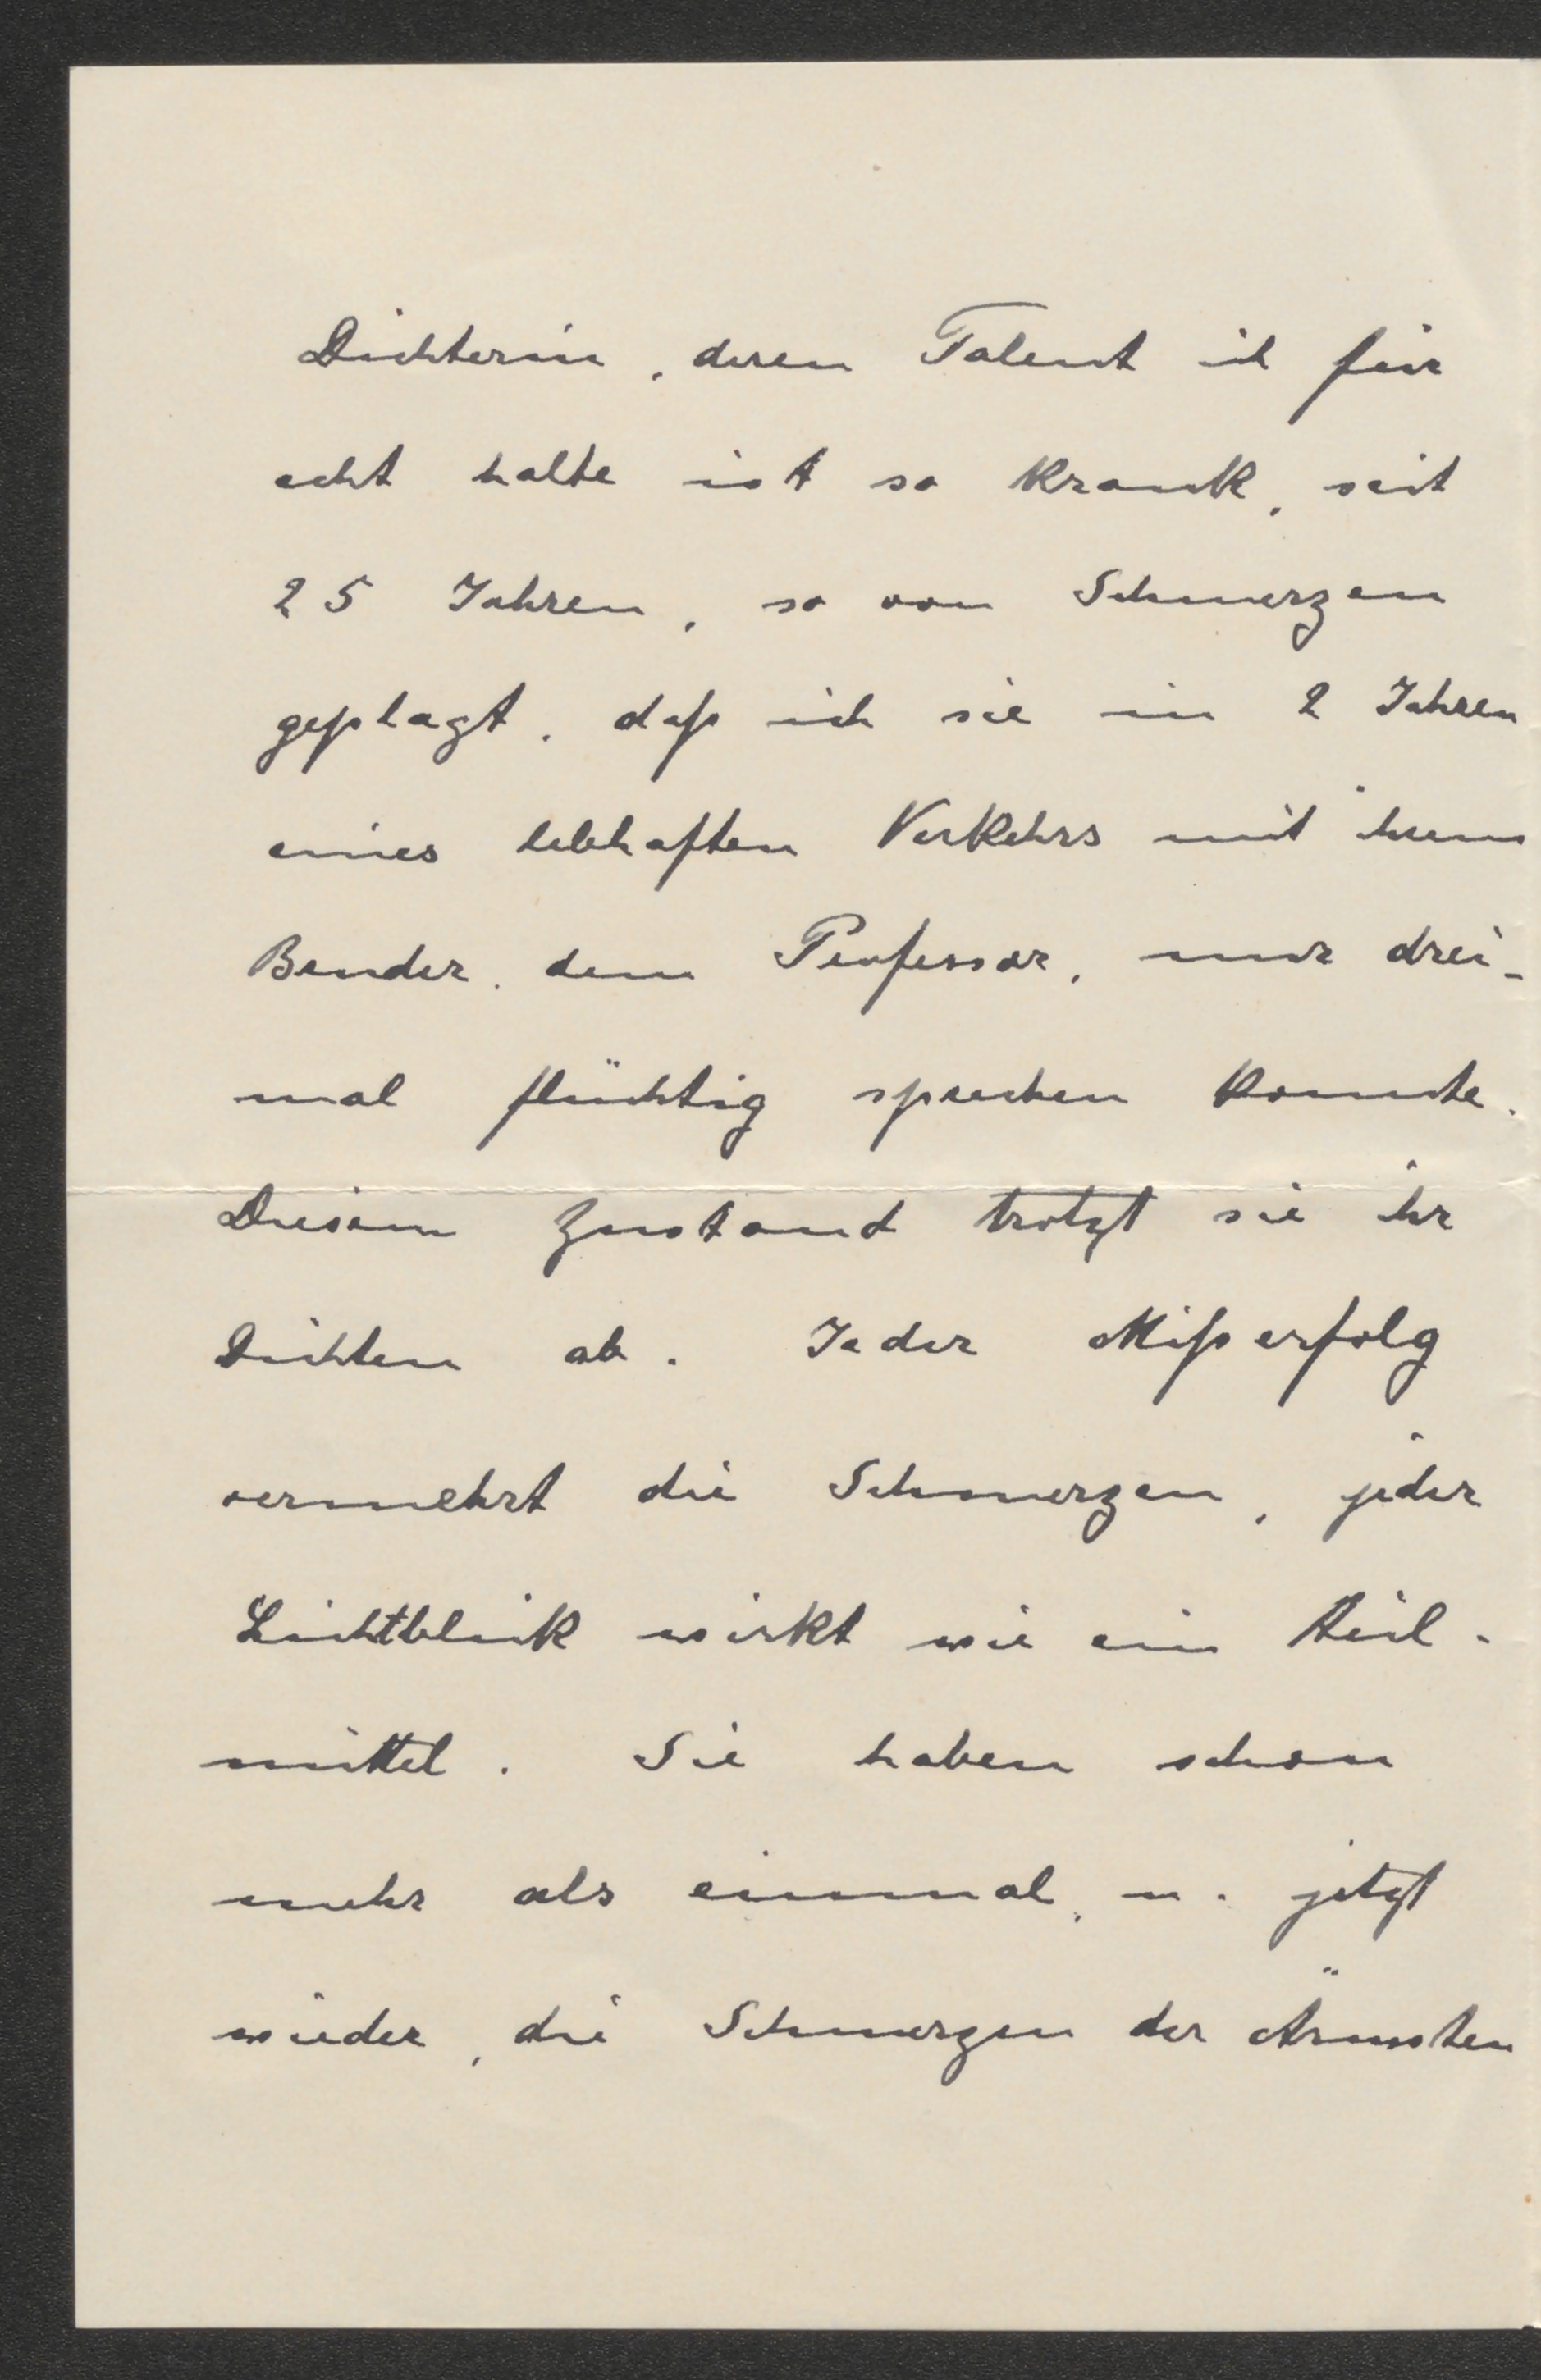 Dichterin, deren Talent ich für
echt halte ist so krank, seit
25 Jahren, so von Schmerzen
geplagt, daß ich sie in 2 Jahren
eines lebhaften Verkehrs mit ihrem
Bruder, dem Professor, nur drei-
mal flüchtig sprechen konnte.
Diesem Zustand trotzt sie ihr
Dichten ab. Jeder Mißerfolg
vermehrt die Schmerzen, jeder
Lichtblick wirkt wie ein Heil-
mittel. Sie haben schon
mehr als einmal, u. jetzt
wieder, die Schmerzen der Ärmsten